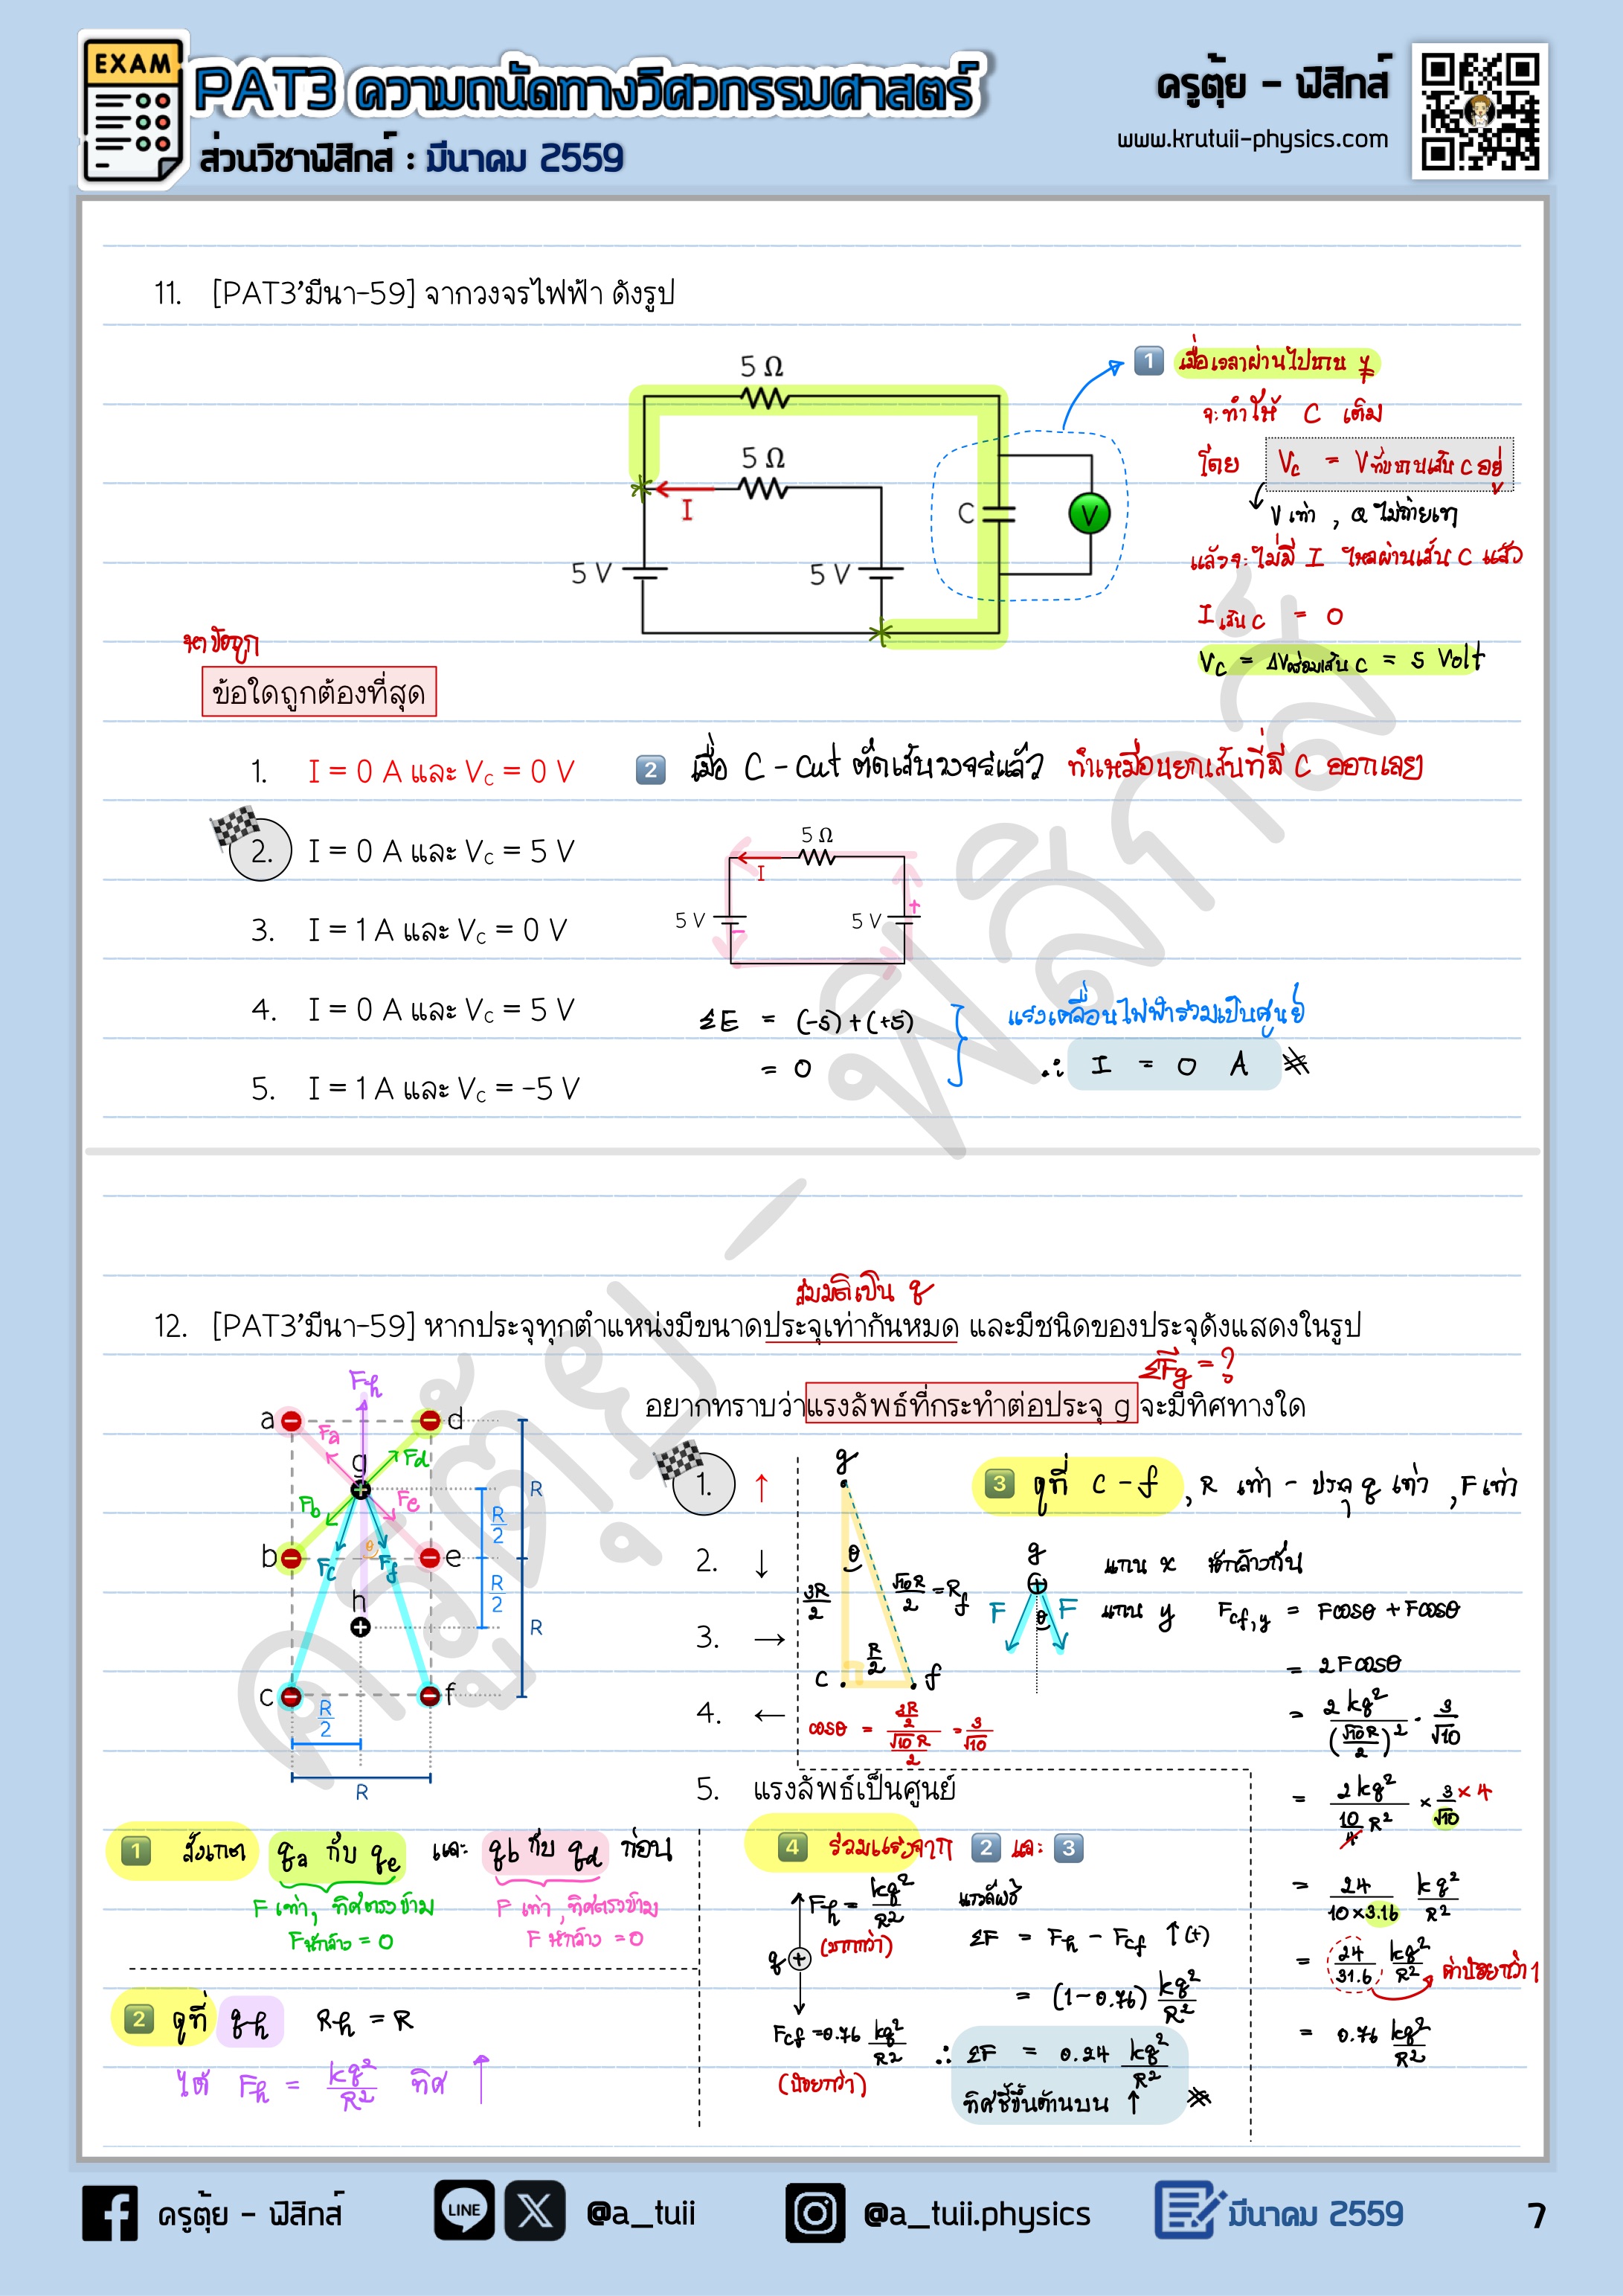 EXAM
PAT3 ความถนัดทางวิศวกรรมศาสตร์
ส่วนวิชาฟิสิกส์ : มีนาคม 2559
ครูตุ้ย - ฟิสิกส์
www.krutuii-physics.com
11. [PAT3'มีนา-59] จากวงจรไฟฟ้า ดังรูป
5 Ω
5 Ω
I
5 V
5 V
C
V
1 เมื่อเวลาผ่านไปนาน ๆ
จะทำให้ C เต็ม
โดย Vc = Vที่ขนานเส้น C อยู่
V เท่า , Q ไม่ถ่ายเท
แล้วจะไม่มี I ไหลผ่านเส้น C แล้ว
I เส้น C = 0
Vc = ΔVคร่อมเส้น C = 5 Volt
หาข้อถูก
ข้อใดถูกต้องที่สุด
1. I = 0 A และ Vc = 0 V
2. I = 0 A และ Vc = 5 V
3. I = 1 A และ Vc = 0 V
4. I = 0 A และ Vc = 5 V
5. I = 1 A และ Vc = -5 V
2 เมื่อ C - Cut ตัดเส้นวงจรแล้ว ทำเหมือนยกเส้นที่มี C ออกเลย
5 Ω
I
5 V
-
5 V
+
ΣE = (-5) + (+5)
= 0
แรงเคลื่อนไฟฟ้ารวมเป็นศูนย์
∴ I = 0 A
สมมติเป็น q
12. [PAT3'มีนา-59] หากประจุทุกตำแหน่งมีขนาดประจุเท่ากันหมด และมีชนิดของประจุดังแสดงในรูป
ΣFg = ?
อยากทราบว่าแรงลัพธ์ที่กระทำต่อประจุ g จะมีทิศทางใด
Fh
a
d
Fa
Fd
g
Fb
Fe
b
e
Fc
θ
Ff
h
c
f
R
R/2
R/2
R
R/2
R
1. ↑
2. ↓
3. →
4. ←
5. แรงลัพธ์เป็นศูนย์
g
θ
3R/2
√10R/2 = Rf
R/2
c
f
cosθ = (3R/2)/(√10R/2) = 3/√10
3 ดูที่ C - f , R เท่า - ประจุ q เท่า , F เท่า
g
F
θ
F
แกน x หักล้างกัน
แกน y Fcf,y = Fcosθ + Fcosθ
= 2Fcosθ
= 2kq²/(√10R/2)² · 3/√10
= 2kq²/(10/4 R²) × 3/√10 × 4
= 24/(10×3.16) kq²/R²
= 24/31.6 kq²/R² ค่าน้อยกว่า 1
= 0.76 kq²/R²
1 สังเกต qa กับ qe และ qb กับ qd ก่อน
F เท่า, ทิศตรงข้าม
Fหักล้าง = 0
F เท่า, ทิศตรงข้าม
F หักล้าง = 0
2 ดูที่ qh Rh = R
ได้ Fh = kq²/R² ทิศ ↑
4 รวมแรงจาก 2 และ 3
Fh = kq²/R²
(มากกว่า)
q
Fcf = 0.76 kq²/R²
(น้อยกว่า)
แรงลัพธ์
ΣF = Fh - Fcf ↑(+)
= (1-0.76) kq²/R²
∴ ΣF = 0.24 kq²/R²
ทิศชี้ขึ้นด้านบน ↑
ครูตุ้ย - ฟิสิกส์
ครูตุ้ย - ฟิสิกส์
LINE
@a_tuii
@a_tuii.physics
มีนาคม 2559
7